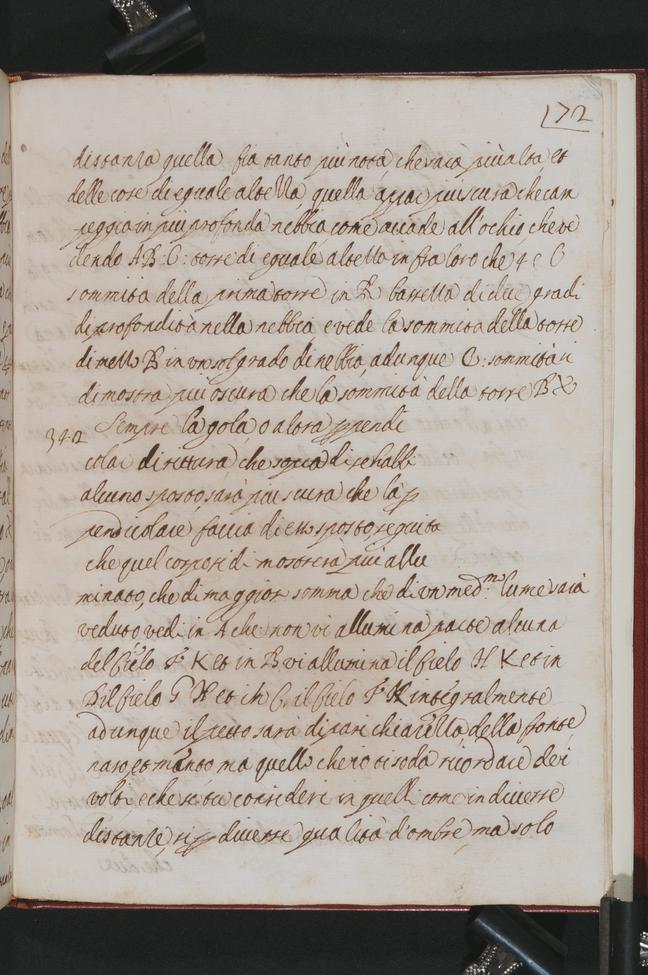 172
distanza quella fia tanto più nota, che sarà più alta et
delle cose di eguale altezza, quella appar più scura che cam
peggia in più profonda nebbia, come accade all'ochio, che ve
dendo A B C: torre di eguale altezza infra loro che C
sommità della prima torre in R bassezza di due gradi
di profondità nella nebbia e vede la sommità della torre
di mezzo B in un sol grado di nebbia, adunque C: sommità si
dimostra più oscura che la sommità della torre B
342 Sempre la gola, o altra prendi
colar dirittura, che sopra di se habbi
alcuno sporto, sarà più scura che la p
pendicolare faccia di esso sporto, seguita
che quel corpo si dimostrerà più allu
minato, che di maggior somma che di un med.mo lume sarà
veduto vedi in A che non vi allumina parte alcuna
del cielo F K et in B vi allumina il cielo H K et in
il cielo G H et ch C. il cielo F K integralmente
adunque il petto sarà di pari chiarezza, della fronte
naso, et mento ma quello che io ti so da ricordare dei
volti, è che tu consideri in quelli come in diverse
distanze, si p diverse qualità d'ombre, ma solo